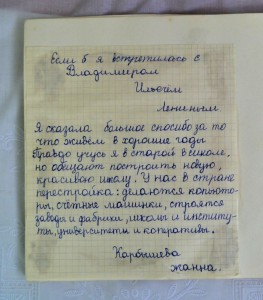 Если б я встретилась с
Владимиром
Ильичём
Лениным
Я сказала большое спосибо за то
что живём в хорошие годы
Правдо учусь я в старой школе,
но обещают построить новую,
красивою школу. У нас в стране
перестройка: делаются копиюто-
ры, счётные машинки, строятся
заводы и фабрики, школы и институ-
ты, университеты и коперативы.
Карышева
Жанна.